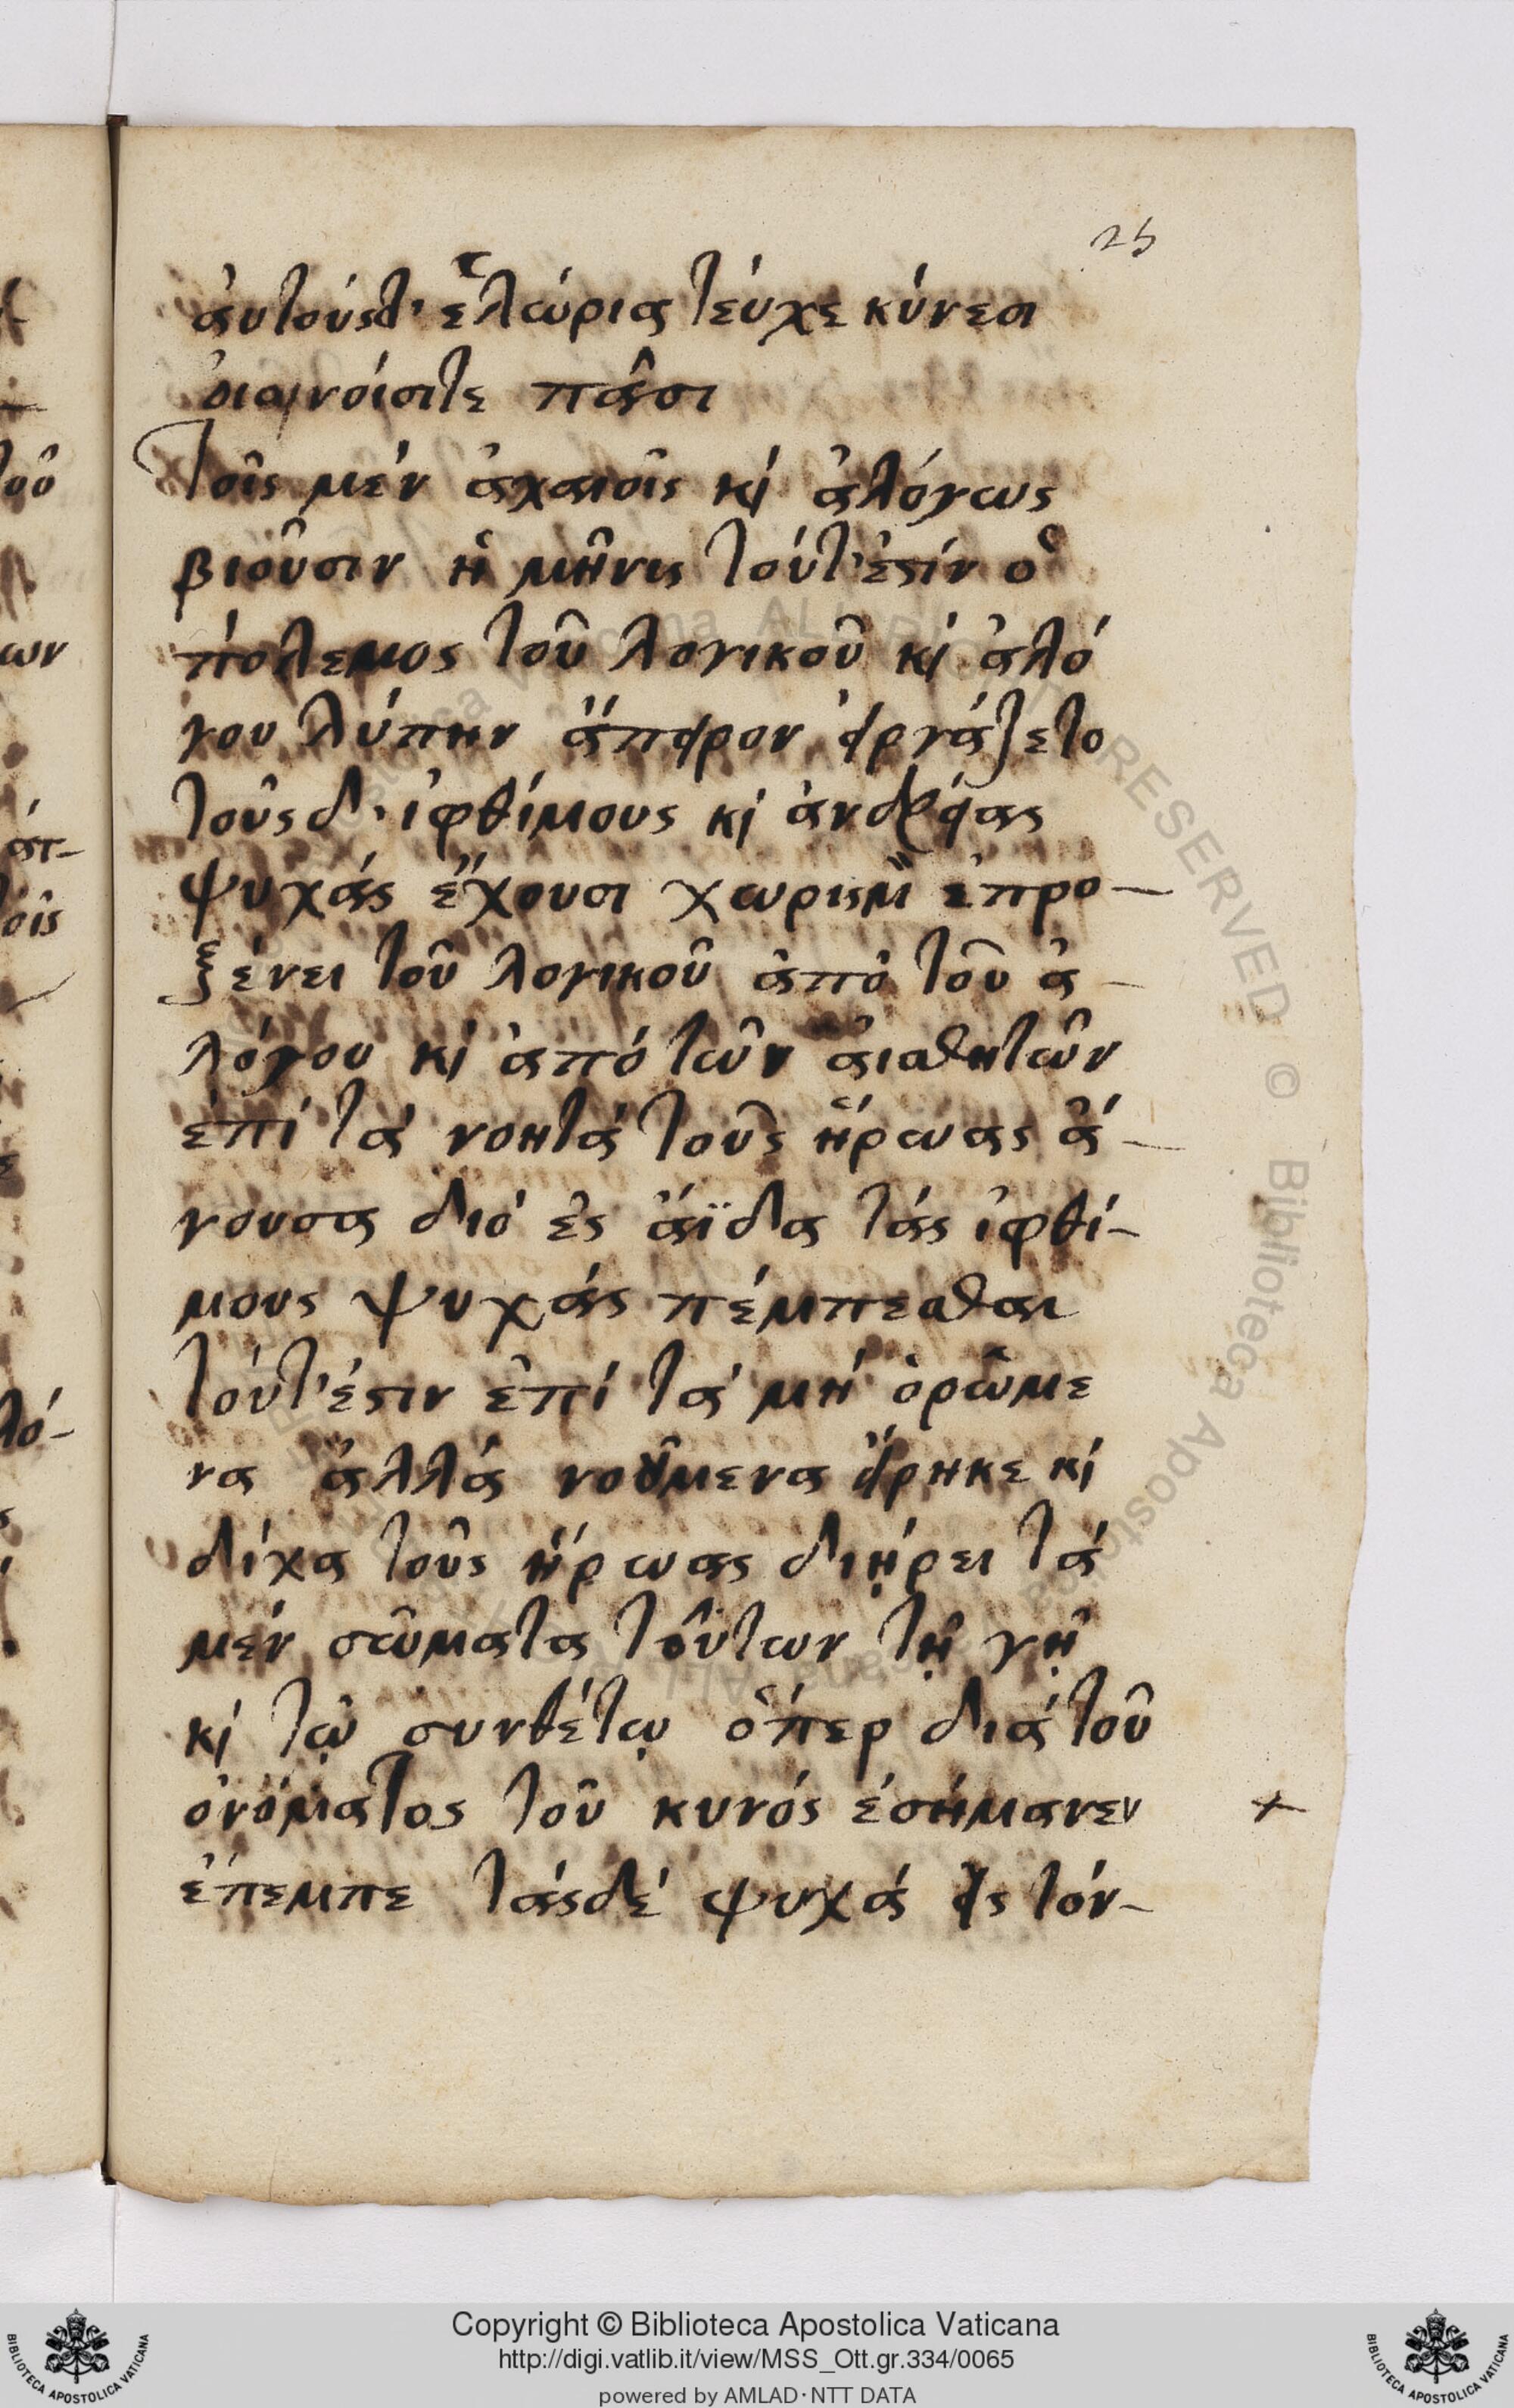 25
αὐτούς δ' ἑλώρια τεύχε κύνεσι
οἰωνοίσιτε πᾶσι
Τοῖς μέν ἀχαιοῖς κὶ ἀλόγως
βιοῦσιν ἡ μῆνις τούτ' ἐστίν ὁ
πόλεμος τοῦ λογικοῦ κὶ ἀλό
γου λύπην ἄπειρον εἰργάζετο
τοῦς δ' ἰφθίμους κὶ ἀνδρείας
ψυχάς ἔχουσι χωρισμὸν ἐπρο-
ξένει τοῦ λογικοῦ ἀπὸ τοῦ ἀ-
λόγου κὶ ἀπό τῶν αἰσθητῶν
ἐπί τὰ νοητὰ τοῦς ἥρωας ἄ-
γουσα διὸ ἐς ἄϊδα τάς ἰφθί-
μους ψυχάς πέμπεσθαι
τούτ' έστιν ἐπί τὰ μή ὁρώμε
να ἀλλά νοούμενα εἴρηκε κὶ
δίχα τοῦς ἥρωας διῄρει τά
μέν σῶματα τοῦτων τῇ γῇ
κὶ τῷ συνθέτῳ ὅπερ διά τοῦ
ὀνόματος τοῦ κυνός ἐσήμανεν +
ἔπεμπε τάς δέ ψυχάς εἰς τόν-
Copyright © Biblioteca Apostolica Vaticana
http://digi.vatlib.it/view/MSS_Ott.gr.334/0065
powered by AMLAD·NTT DATA